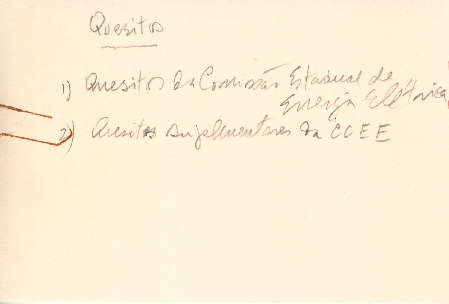 Quesitos
1) Quesitos da Comissão Estadual de
Energia Elétrica
2) Quesitos suplementares da CCEE